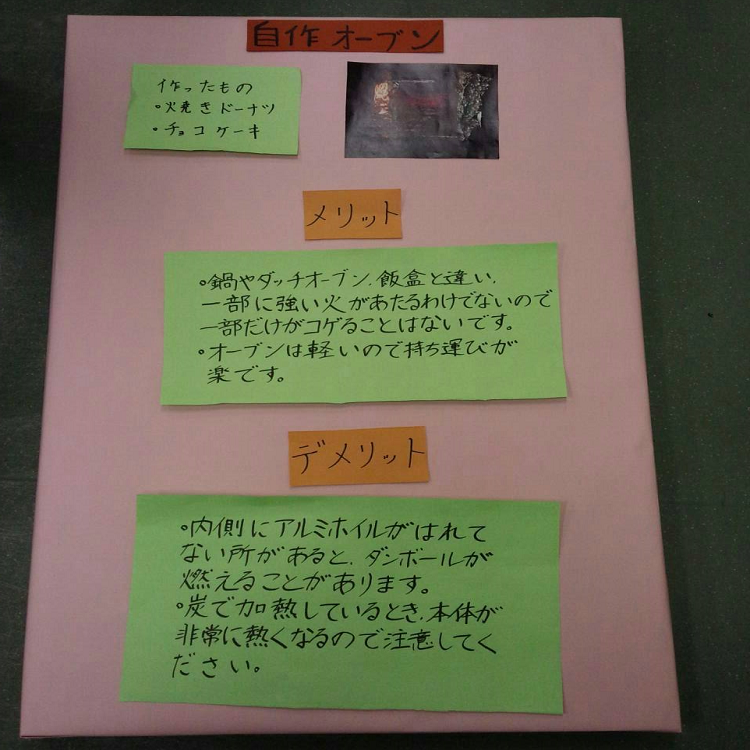 自作オーブン
作ったもの
・火焼きドーナツ
・チョコケーキ
メリット
・鍋やダッチオーブン、飯盒と違い、
一部に強い火があたるわけでないので
一部だけがコゲることはないです。
・オーブンは軽いので持ち運びが
楽です。
デメリット
・内側にアルミホイルがはれて
ない所があると、ダンボールが
燃えることがあります。
・炭で加熱しているとき、本体が
非常に熱くなるので注意してく
ださい。